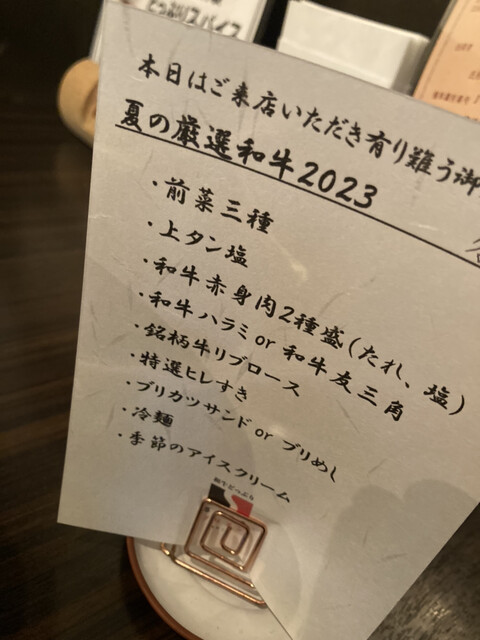 たっぷりスパイス
本日はご来店いただき有り難う御
夏の厳選和牛2023
・前菜三種
・上タン塩
・和牛赤身肉2種盛(たれ、塩)
・和牛ハラミor和牛友三角
・銘柄牛リブロース
・特選ヒレすき
・ブリカツサンドorブリめし
・冷麺
・季節のアイスクリーム